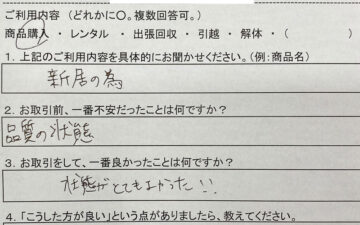 ご利用内容 （どれかに○。複数回答可。）
商品購入 ・ レンタル ・ 出張回収 ・ 引越 ・ 解体 ・（　　　　）
1．上記のご利用内容を具体的にお聞かせください。（例：商品名）
新居の為
2．お取引前、一番不安だったことは何ですか？
品質の状態
3．お取引をして、一番良かったことは何ですか？
状態がとてもよかった！！
4．「こうした方が良い」という点がありましたら、教えてください。